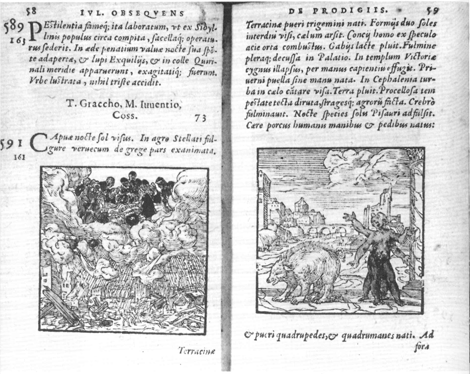 58 IVL. OBSEQVENS
589 PEstilentia fameq; ita laboratum, vt ex Sibyl-
163 linis populus circa compita, sacellaq; operatu-
rus sederit. In æde penatium valuæ nocte sua spō-
te adapertæ, & lupi Exquilijs, & in colle Quiri-
nali meridie apparuerunt, exagitatiq; fuerunt.
Vrbe lustrata, nihil triste accidit.
T. Graccho, M. Iuuentio,
Coss. 73
591 CApuæ nocte sol visus. In agro Stellati ful-
161 gure veruecum de grege pars exanimata.
Terracinæ
DE PRODIGIIS. 59
Terracinæ pueri trigemini nati. Formijs duo soles
interdiu visi, cælum arsit. Concæ homo ex speculo
orta combustus. Gabijs lacte pluit. Fulmine
pleraq; decussa in Palatio. In templum Victoriæ
cygnus illapsus, per manus capientiū effugit. Pri-
uerni puella sine manu nata. In Cephalenia tur-
ba in cælo cātare visa. Terra pluit. Procellosa tem
pestate tecta diruta, stragesq; agrorū facta. Crebrò
fulminauit. Nocte species solis Pisauri adfulsit.
Cære porcus humanis manibus & pedibus natus:
& pueri quadrupedes, & quadrumanes nati. Ad
fora